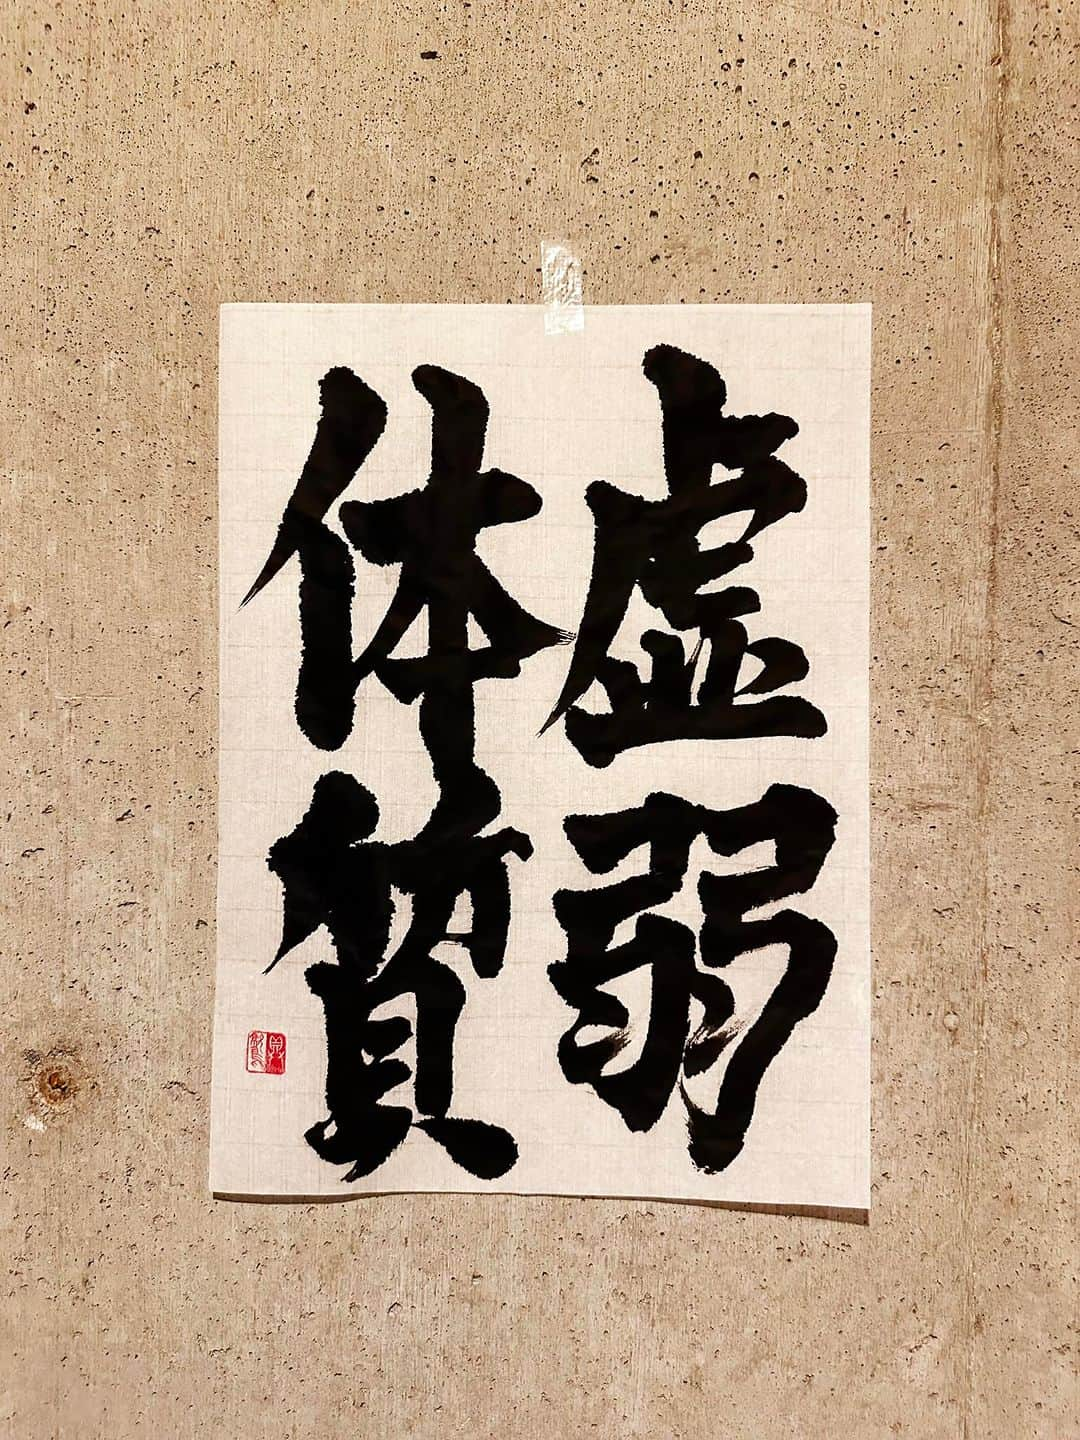 虚弱
体質